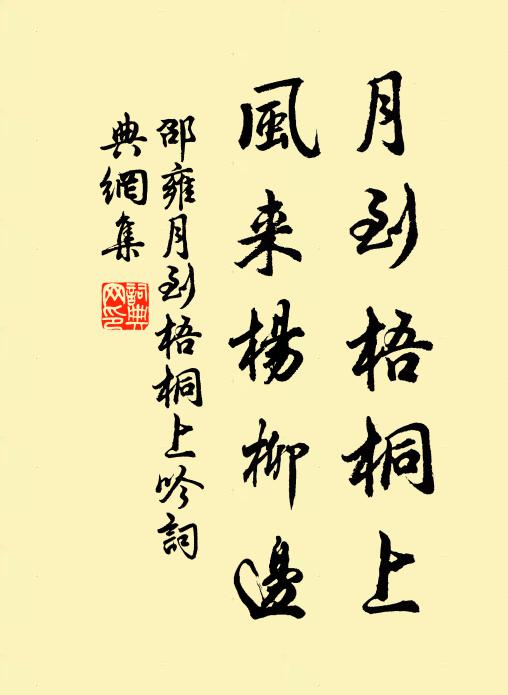 月到梧桐上
風来楊柳邊
邵雍月到梧桐上吟詞
典網集
詞典
网印